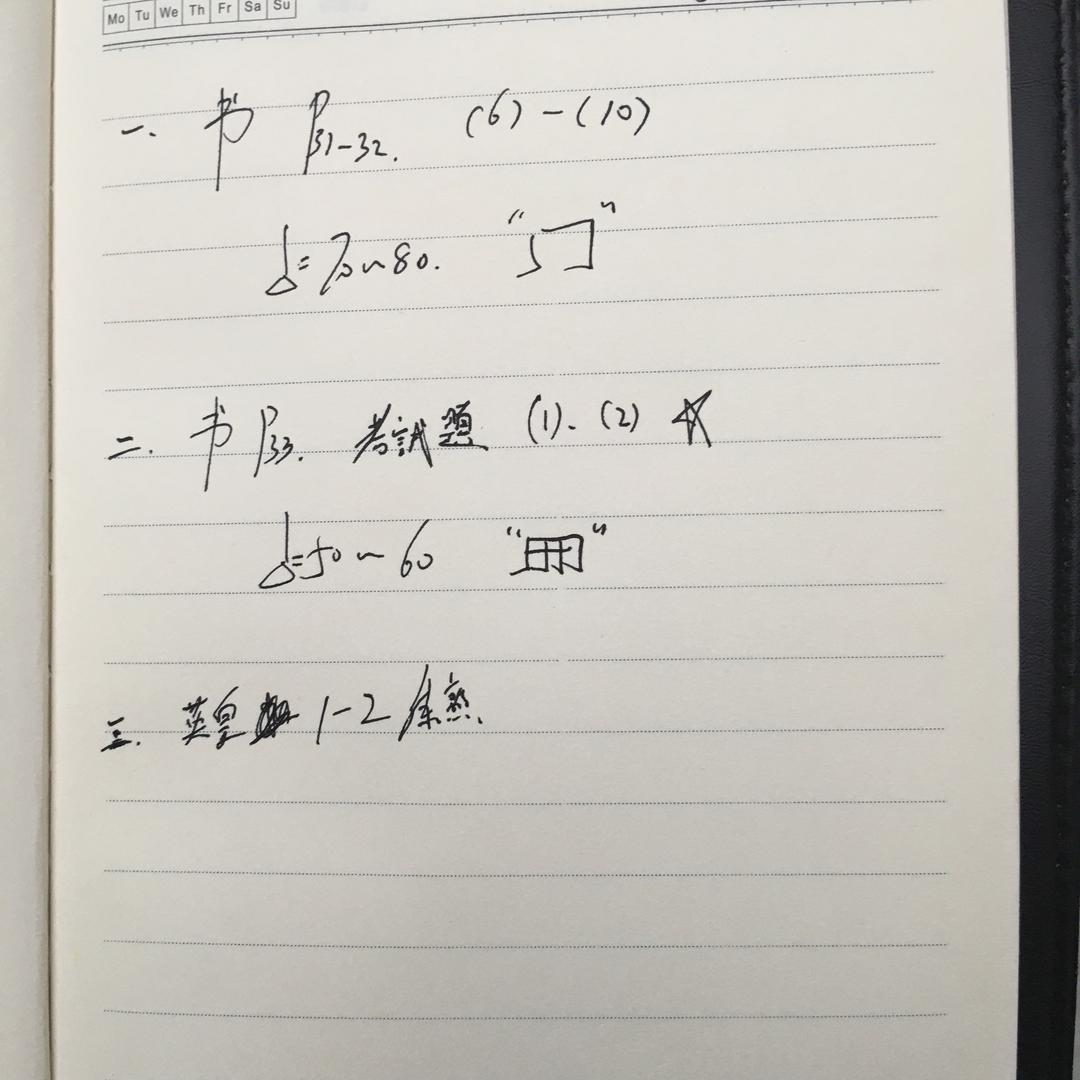 Mo Tu We Th Fr Sa Su
一. 书 P31-32. (6)-(10)
♩=70~80. “ ”
二. 书 P33. 考試題 (1)、(2) ☆
♩=50~60 “ ”
三. 英皇 1-2 集熟.